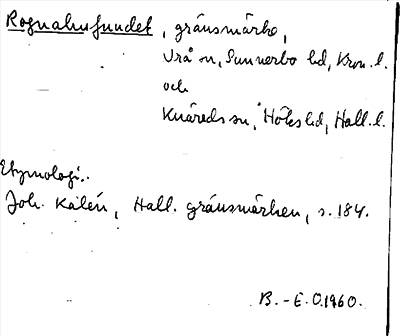 Rognalusfundet, gränsmärke,
Vrå sn, Sunnerbo hd, Kron. l.
och
Knäreds sn, Höks hd, Hall. l.
Etymologi..
Joh. Kalén, Hall. gränsmärken, s. 184.
B.-E.O. 1960.